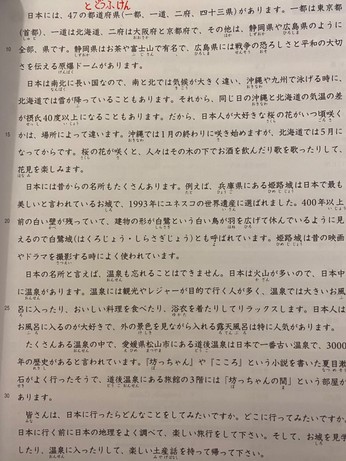 とどうふけん
日本には、47の都道府県(一都、一道、二府、四十三県)があります。一都は東京都
(首都)、一道は北海道、二府は大阪府と京都府で、その他は、静岡県や広島県のように
10 全部、県です。静岡県はお茶や富士山で有名で、広島県には戦争の恐ろしさと平和の大切
さを伝える原爆ドームがあります。
日本は南北に長い国なので、南と北では気候が大きく違い、沖縄や九州で泳げる時に、
北海道では雪が降っていることもあります。それから、同じ日の沖縄と北海道の気温の差
が摂氏40度以上になることもあります。だから、日本人が大好きな桜の花がいつ頃咲く
15 かは、場所によって違います。沖縄では1月の終わりに咲き始めますが、北海道では5月に
なってからです。桜の花が咲くと、人々はその木の下でお酒を飲んだり歌を歌ったりして、
花見を楽しみます。
日本には昔からの名所もたくさんあります。例えば、兵庫県にある姫路城は日本で最も
美しいと言われているお城で、1993年にユネスコの世界遺産に選ばれました。400年以上
20 前の白い壁が残っていて、建物の形が白鷺という白い鳥が羽を広げて休んでいるように見
えるので白鷺城(はくろじょう・しらさぎじょう)とも呼ばれています。姫路城は昔の映画
やドラマを撮影する時によく使われています。
日本の名所と言えば、温泉も忘れることはできません。日本は火山が多いので、日本中
に温泉があります。温泉には観光やレジャーが目的で行く人が多く、温泉では大きいお風
25 呂に入ったり、おいしい料理を食べたり、浴衣を着たりしてリラックスします。日本人は
お風呂に入るのが大好きで、外の景色を見ながら入れる露天風呂は特に人気があります。
たくさんある温泉の中で、愛媛県松山市にある道後温泉は日本で一番古い温泉で、3000
年の歴史があると言われています。「坊っちゃん」や「こころ」という小説を書いた夏目漱
石がよく行ったそうで、道後温泉にある旅館の3階には「坊っちゃんの間」という部屋が
30 あります。
皆さんは、日本に行ったらどんなことをしてみたいですか。どこに行ってみたいですか。
日本に行く前に日本の地理をよく調べて、楽しい旅行をして下さい。そして、お城を見学
したり、温泉に入ったりして、楽しい土産話を持って帰って下さい。